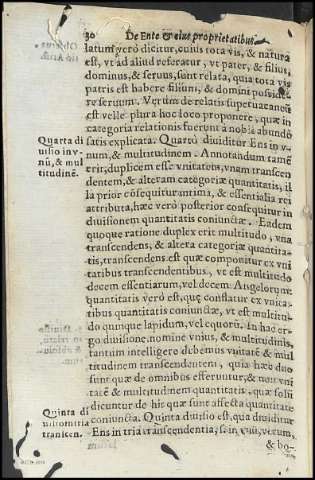 30 De Ente & eius proprietatibus
latum verò dicitur, cuius tota vis, & natura
est, vt ad aliud referatur, vt pater, & filius,
dominus, & seruus, sunt relata, quia tota vis
patris est habere filium, & domini possidere
re seruum. Verum de relatis superuacaneũ
est velle plura hoc loco proponere, quæ in
categoria relationis fuerunt a nobis abundè
satis explicata. Quartò diuiditur Ens in v-
num, & multitudinem. Annotandum tamẽ
erit; duplicem esse vnitatem, vnam transcen
dentem, & alteram categoriæ quantitatis, il
la prior cõsequitur omnia, & essentialia rei
attributa, hæc verò posterior consequitur in
diuisionem quantitatis coniunctæ. Eadem
quoque ratione duplex erit multitudo, vna
transcendens, & altera categoriæ quantita-
tis, transcendens est quæ componitur ex vni
tatibus transcendentibus, vt est multitudo
decem essentiarum, vel decem Angelorum:
quantitatis verò est, quę conflatur ex vnita-
tibus quantitatis coniunctæ, vt est multitu
do quinque lapidum, vel equorũ. In hac er-
go diuisione, nomine vnius, & multitudinis,
tantum intelligere debemus vnitatẽ & mul
titudinem transcendentem, quia hæc duo
sunt quæ de omnibus efferuntur, & non vni
tatẽ & multitudinem quantitatis, quæ solū
dicuntur de his quæ sunt affecta quantitate
coniuncta. Quinta diuisio est, qua diuiditur
Ens in tria transcendentia, s. in vnũ, verum,
& bo-
Quarta di
uisio in v-
nũ, & mul
titudinẽ.
Quinta di
uisio in tria
transcen.